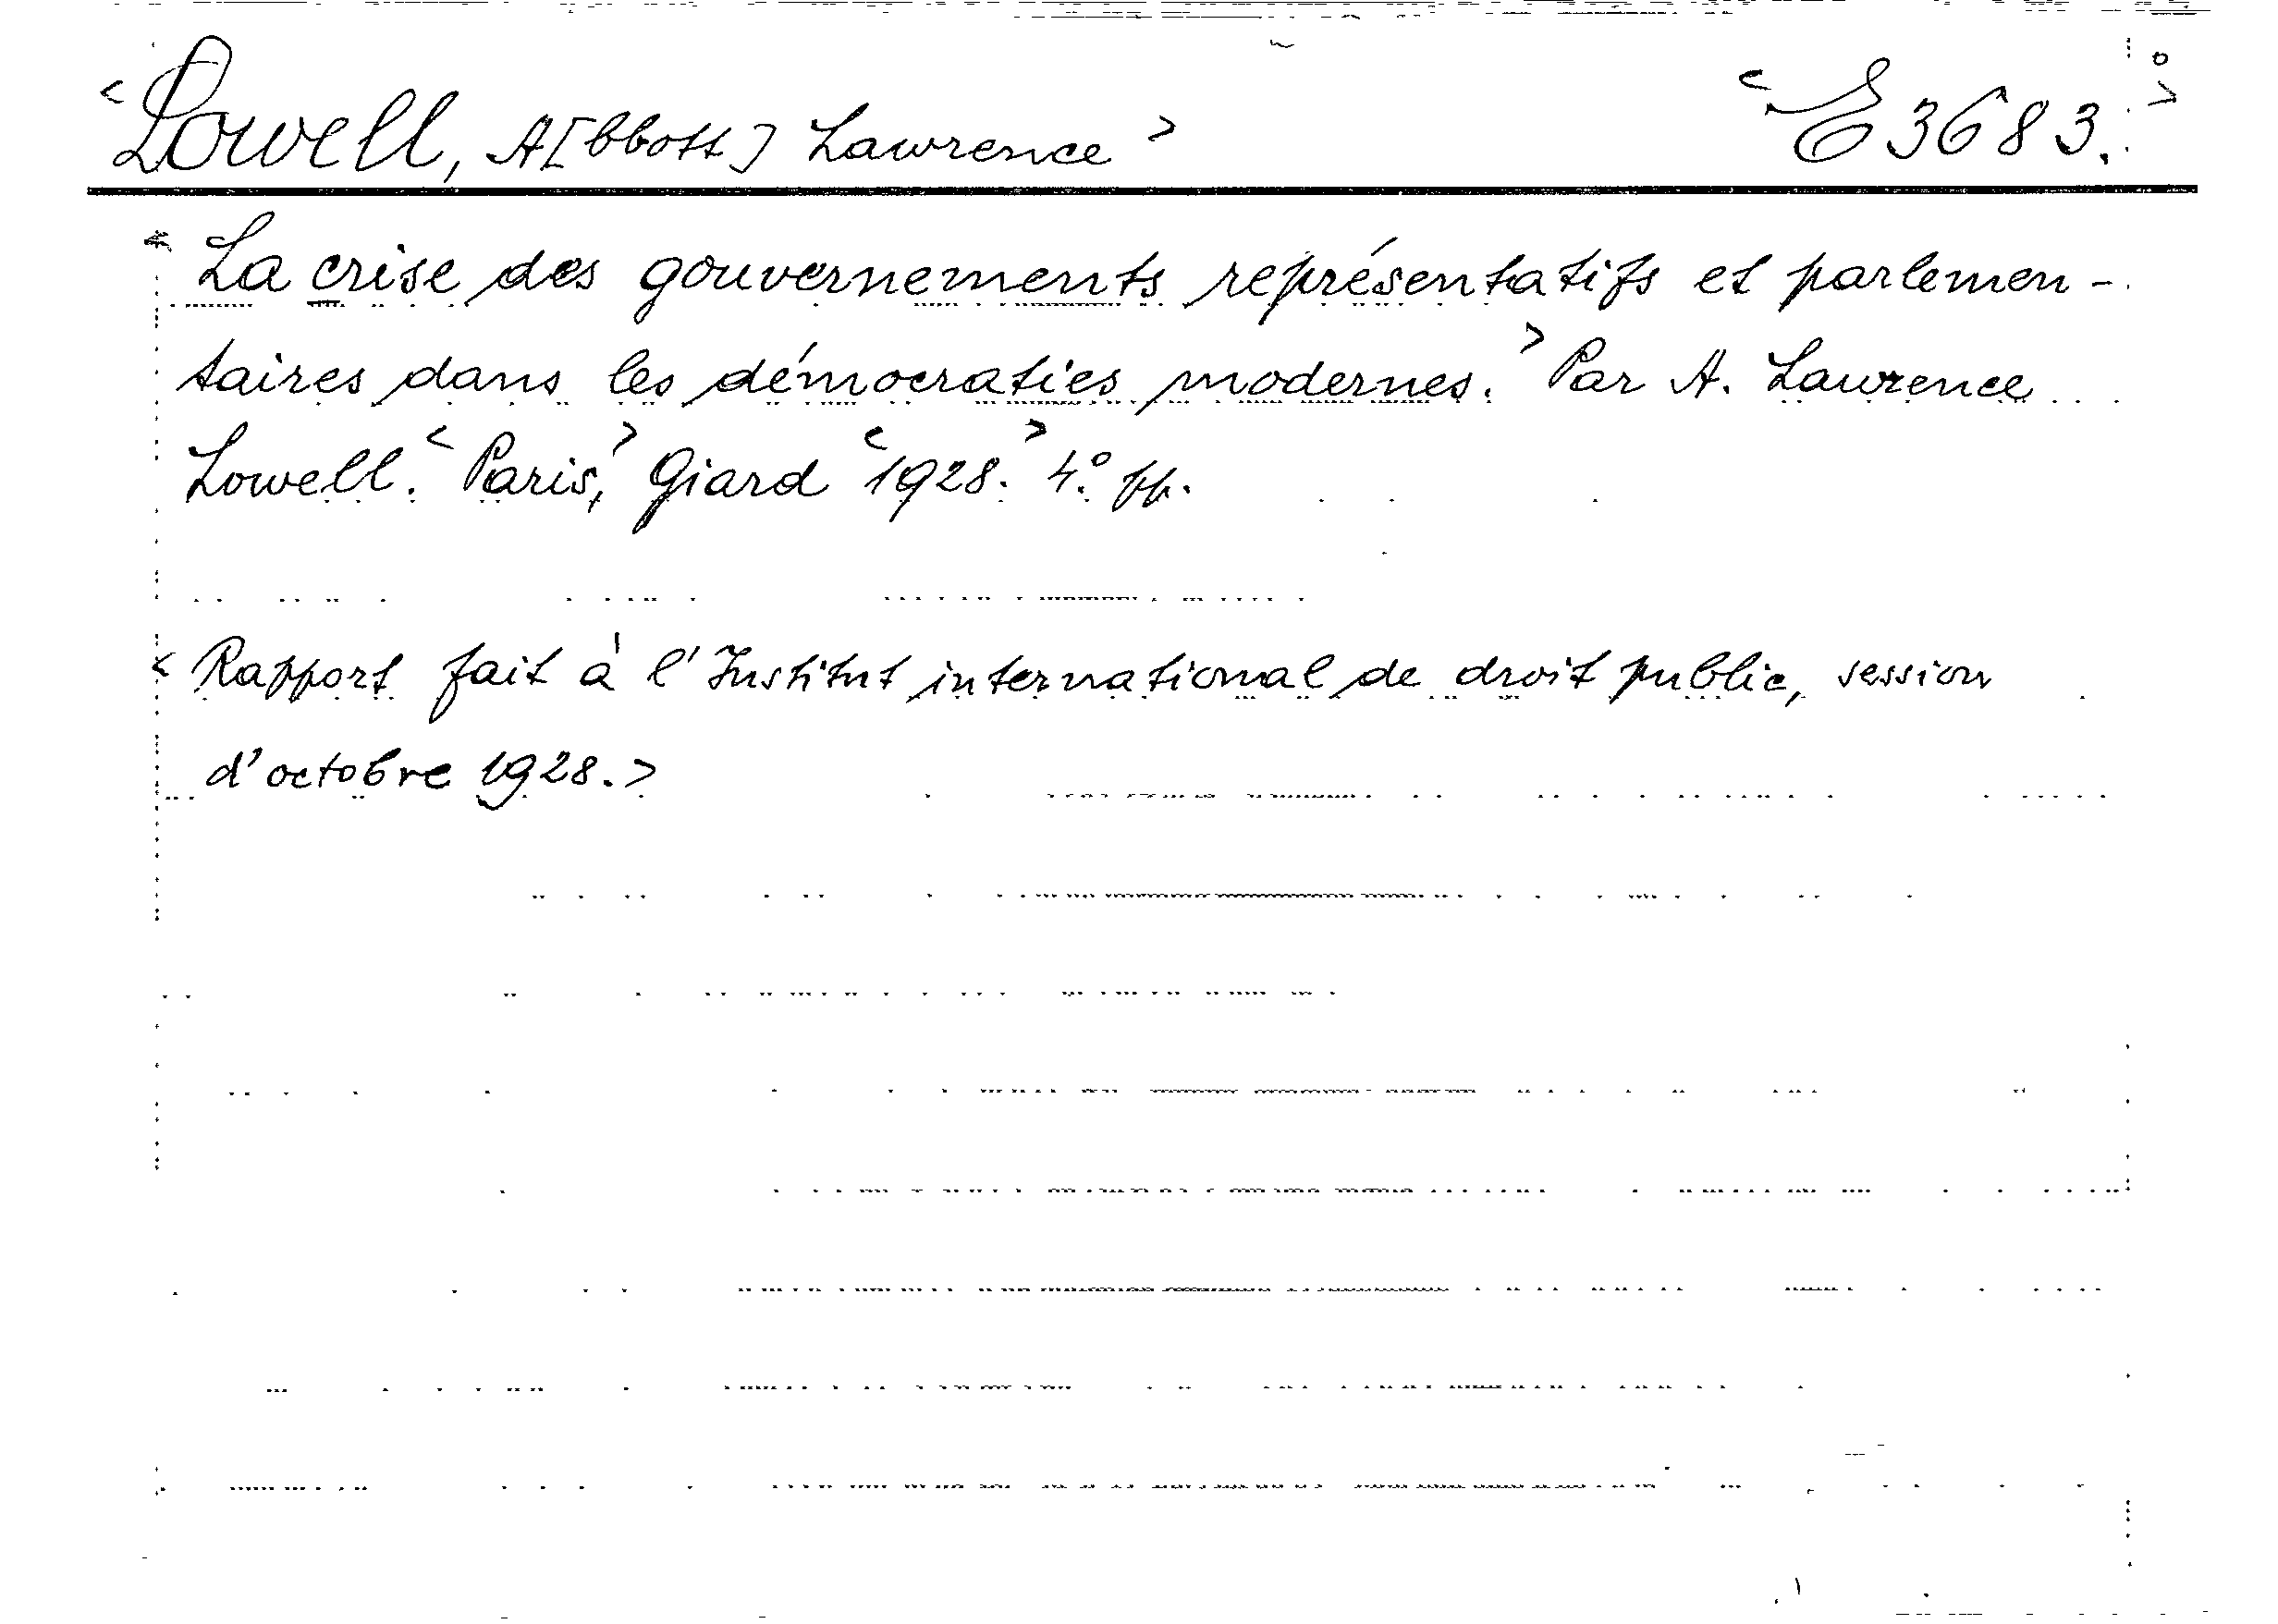 <Lowell, A[bbott] Lawrence> <E 3683.>°
<La crise des gouvernements représentatifs et parlemen-
taires dans les démocraties modernes.> Par A. Lawrence
Lowell. <Paris,> Giard <1928.> 4.° pp.
<Rapport fait à l'Institut international de droit public, session
d'octobre 1928.>